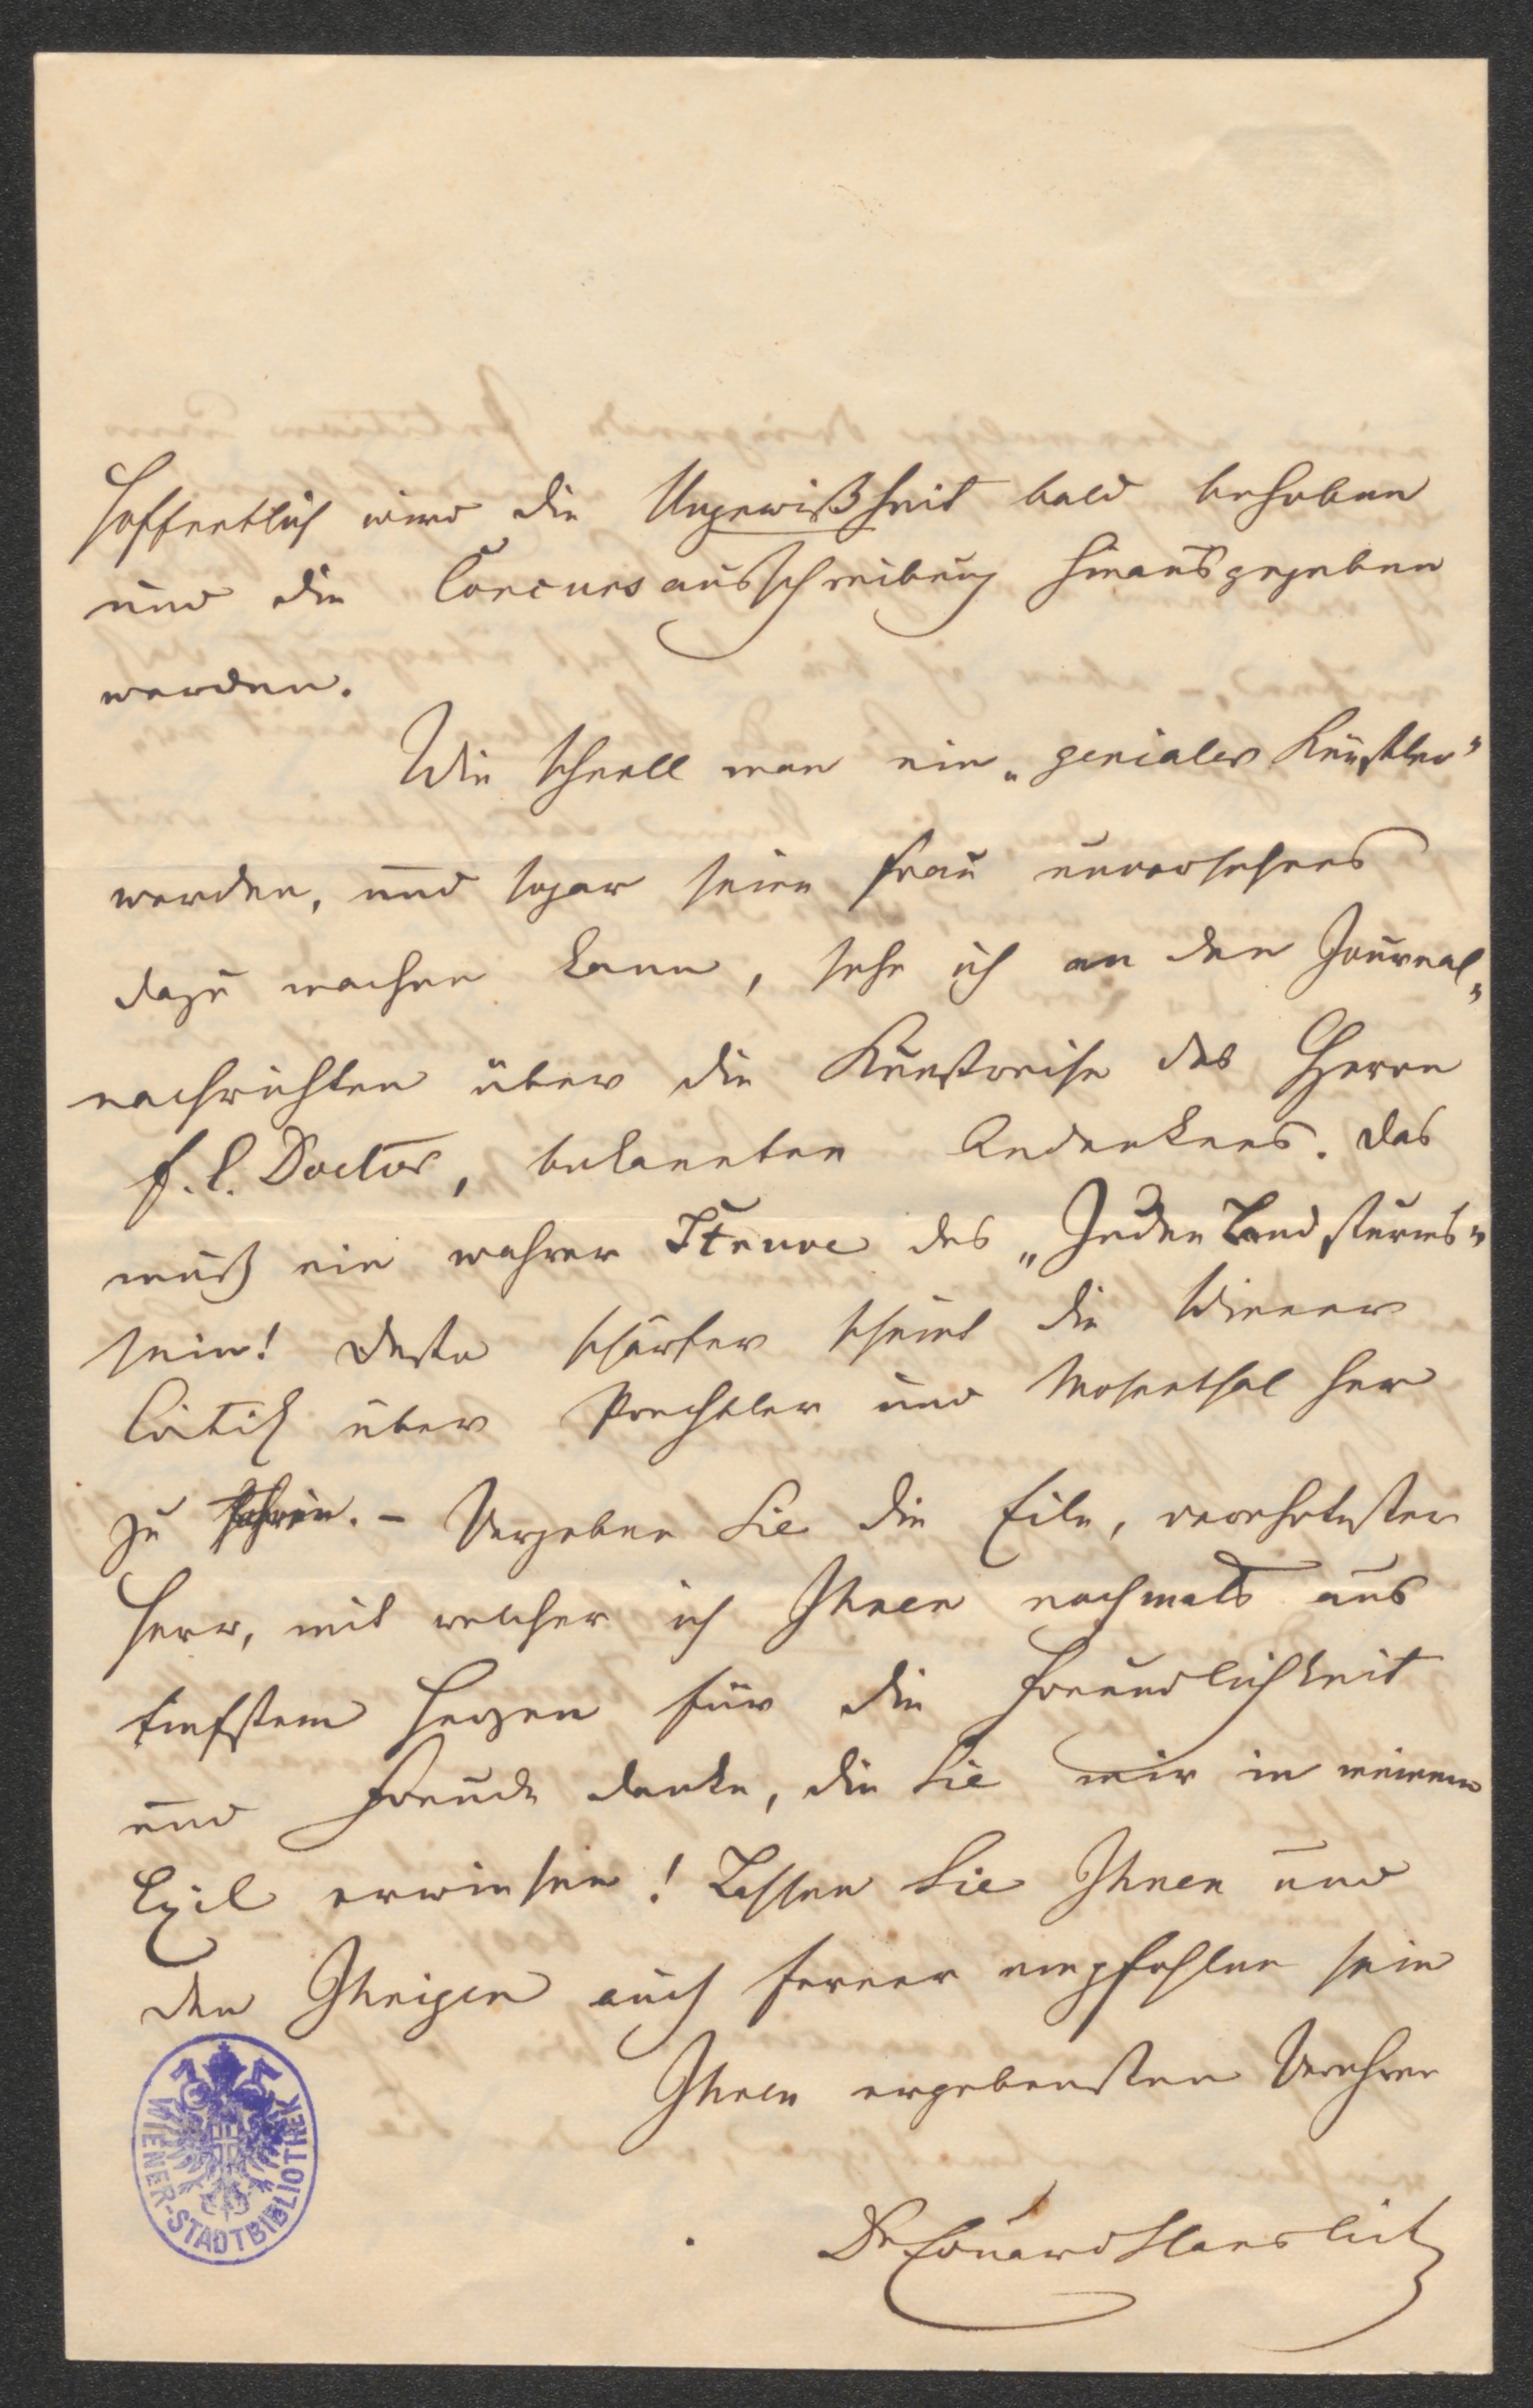 Hoffentlich wird die Ungewißheit bald behoben
und die Concursausschreibung hinausgegeben
werden.
Wie schnell man ein „genialer Künstler"
werden, und sogar seine Frau unversehens
dazu machen kann, sehe ich an den Journal„
nachrichten über die Kunstreise des Herrn
F. E. Doctor, bekannten Andenkens. Das
muß ein wahrer Struve des „Juden Landsturms"
sein! Desto schärfer scheint die Wiener
Critik über Prechtler und Mosenthal her
zu fahren. – Vergeben Sie die Eile, verehrtester
Herr, mit welcher ich Ihnen nochmals aus
tiefstem Herzen für die Freundlichkeit
und Freude danke, die Sie mir in meinem
Exil erwiesen! Lassen Sie Ihnen und
den Ihrigen auch ferner empfohlen sein
Ihren ergebensten Verehrer
Dr Eduard Hanslick
WIENER-STADTBIBLIOTHEK